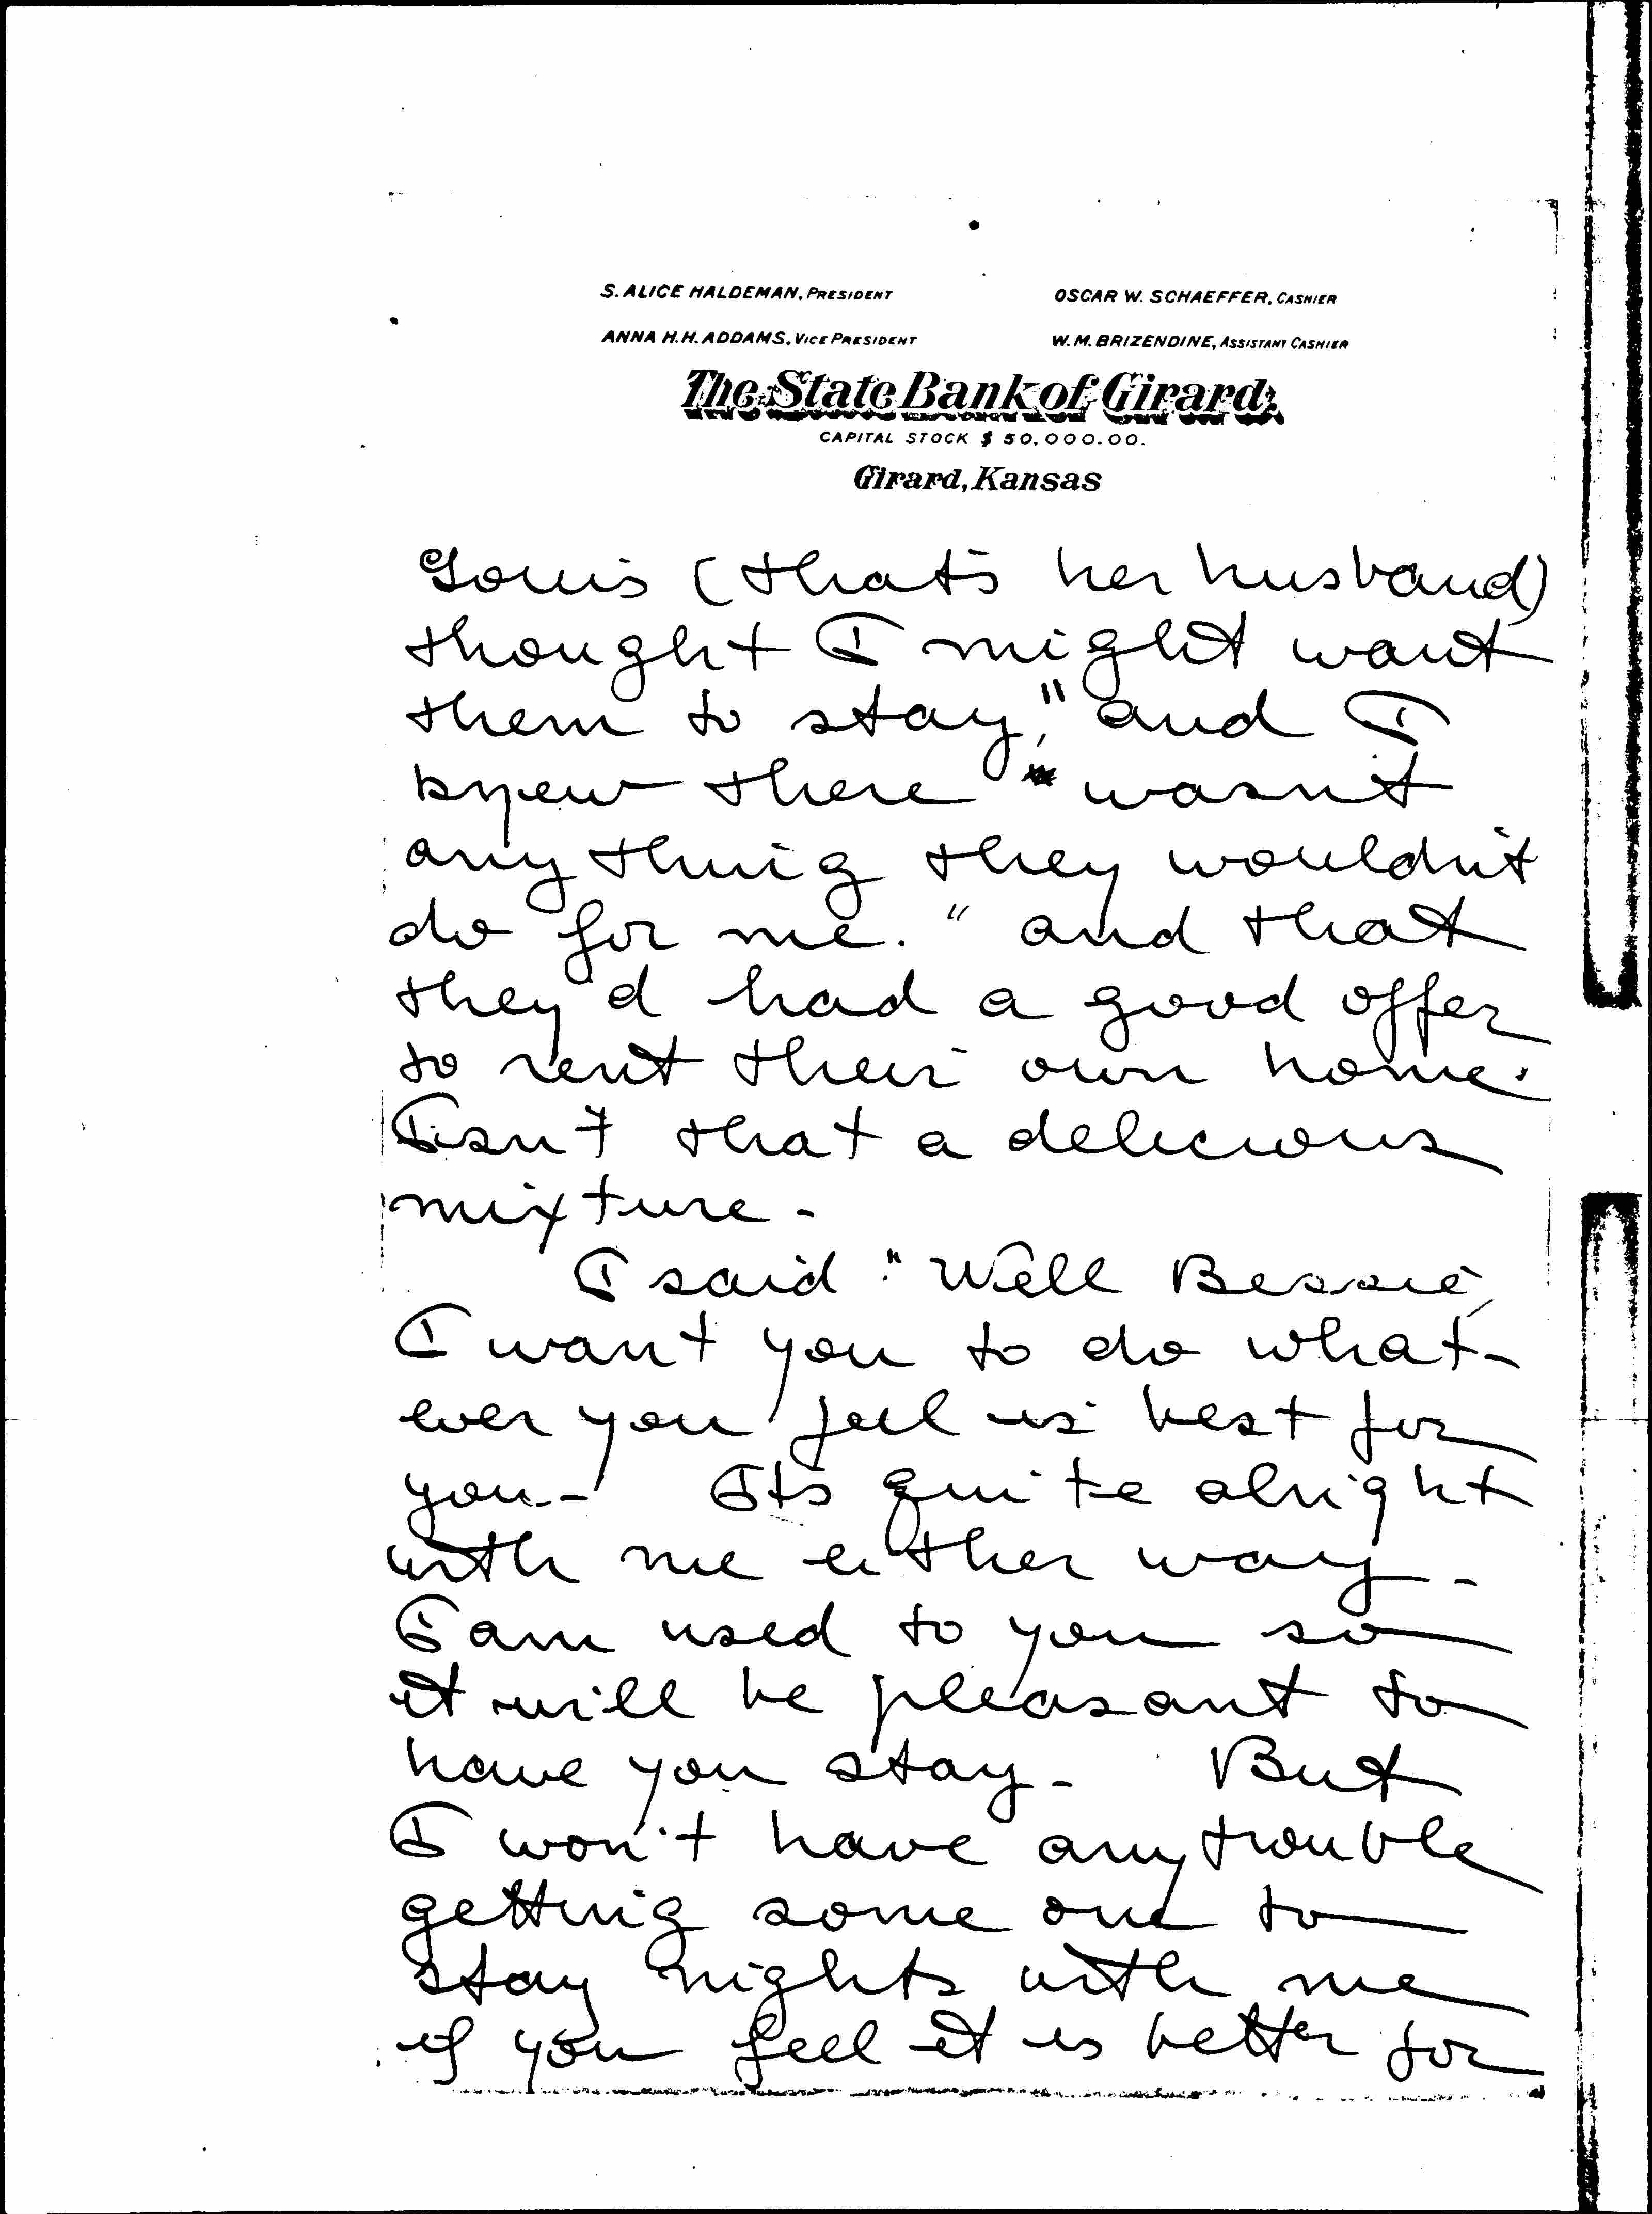 S. ALICE HALDEMAN, PRESIDENT
OSCAR W. SCHAEFFER, CASHIER
ANNA H. H. ADDAMS, VICE PRESIDENT
W. M. BRIZENDINE, ASSISTANT CASHIER
The State Bank of Girard.
CAPITAL STOCK $ 50,000.00.
Girard, Kansas
Louis (that's her husband)
thought I might want
them to stay," and I
knew there "wasn't
any thing they wouldn't
do for me." and that
they'd had a good offer
to rent their own home.
Isn't that a delicious
mixture -
I said "Well Bessie,
I want you to do what-
ever you feel is best for
you - Its quite alright
with me either way -
I am used to you so
it will be pleasant to
have you stay - But
I won't have any trouble
getting some one to
stay nights with me
if you feel it is better for